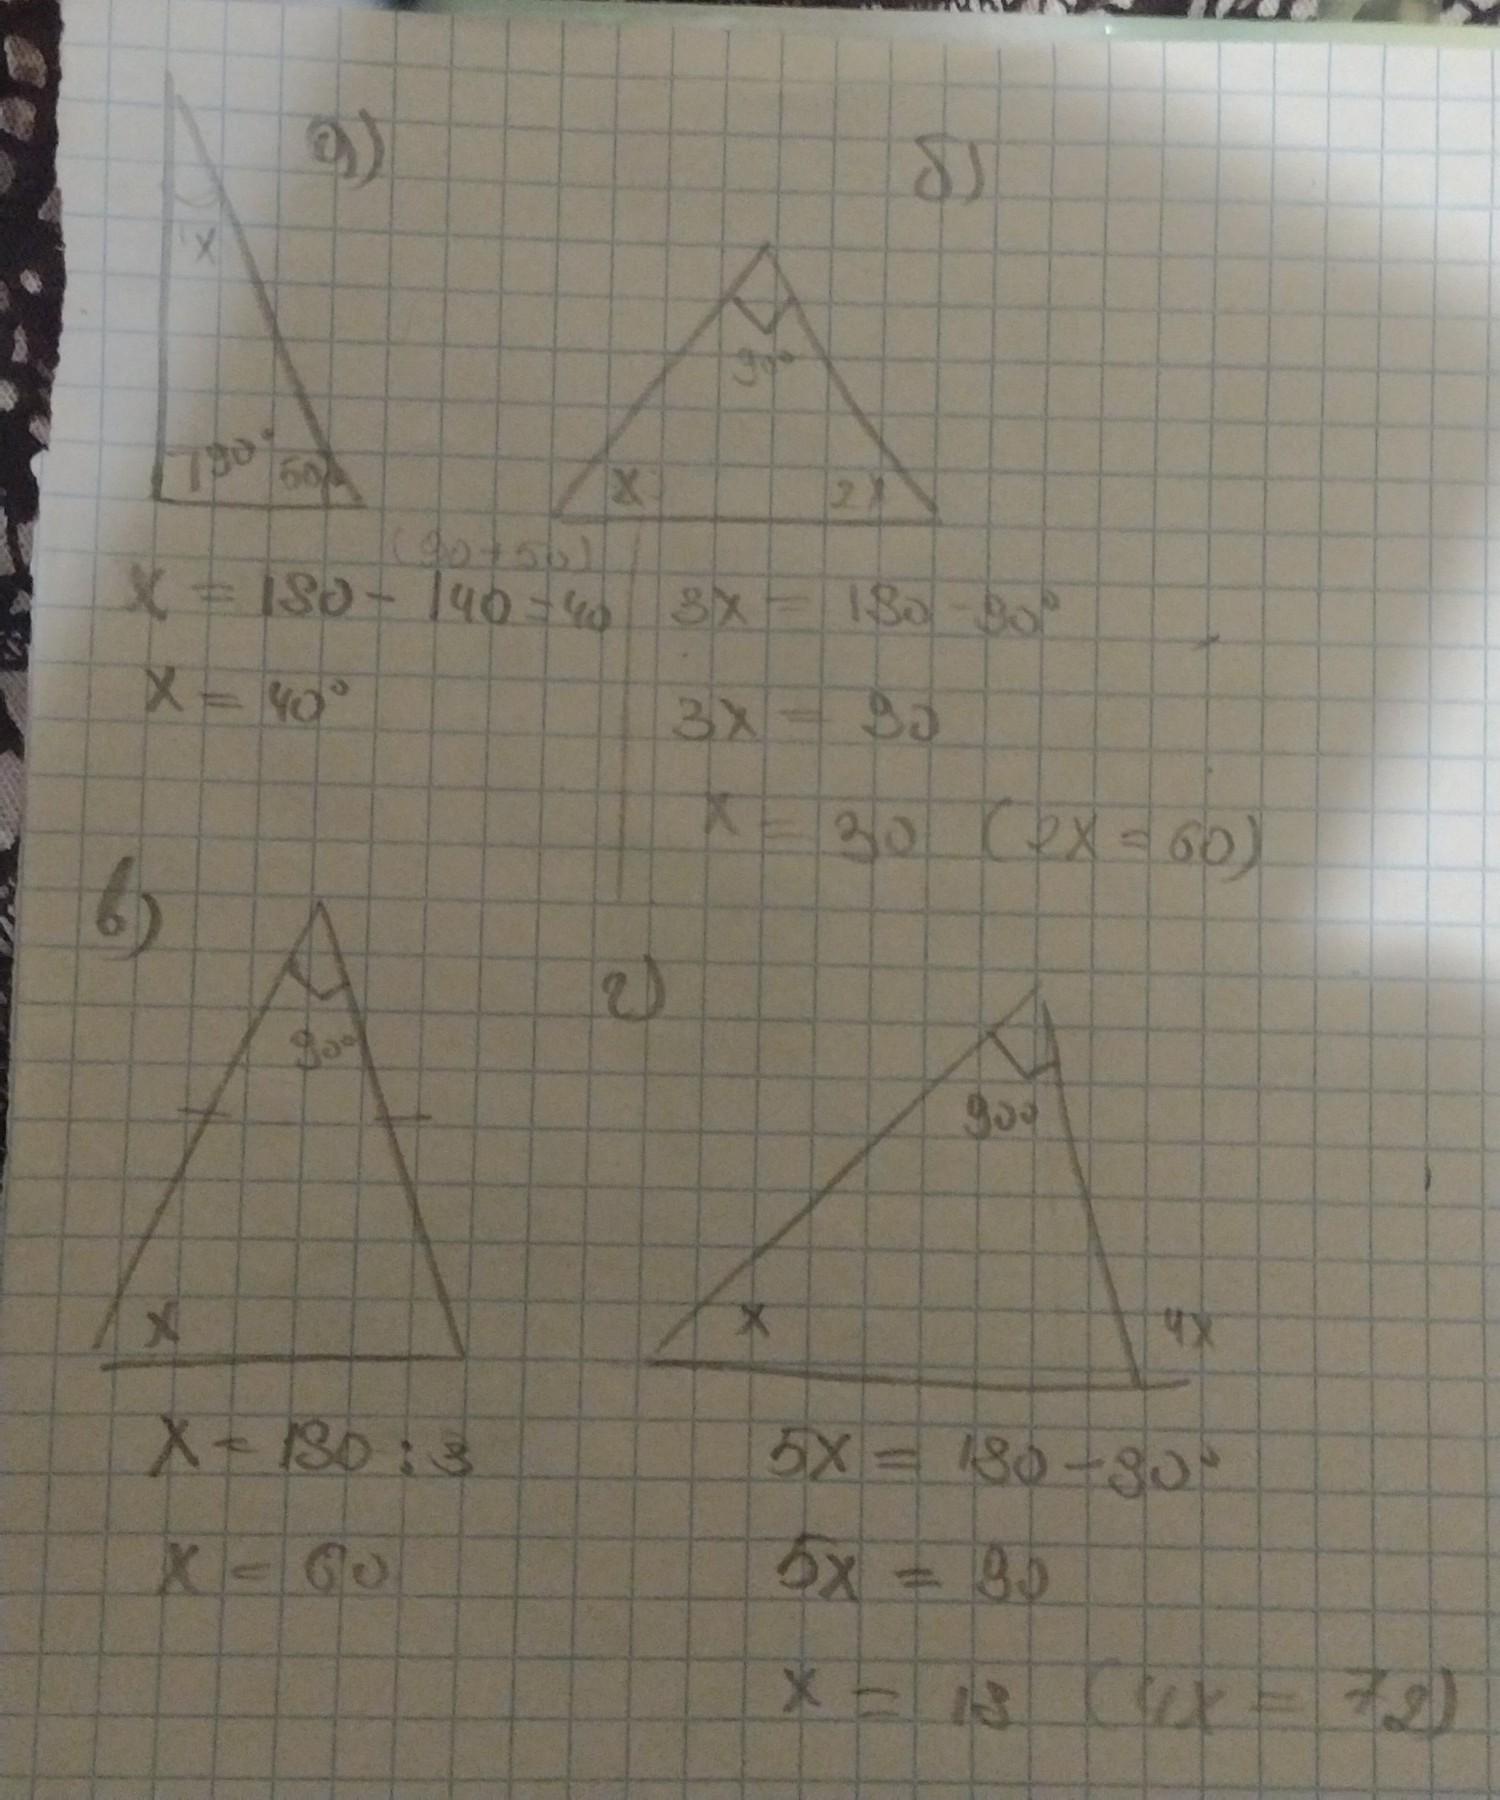 а)
б)
x
90°
50°
90°
x
2x
(90+50)
x = 180 - 140 = 40
x = 40°
3x = 180 - 90°
3x = 90
x = 30 (2x = 60)
в)
90°
x
x = 180 : 3
x = 60
г)
90°
x
4x
5x = 180 - 90°
5x = 90
x = 18 (4x = 72)